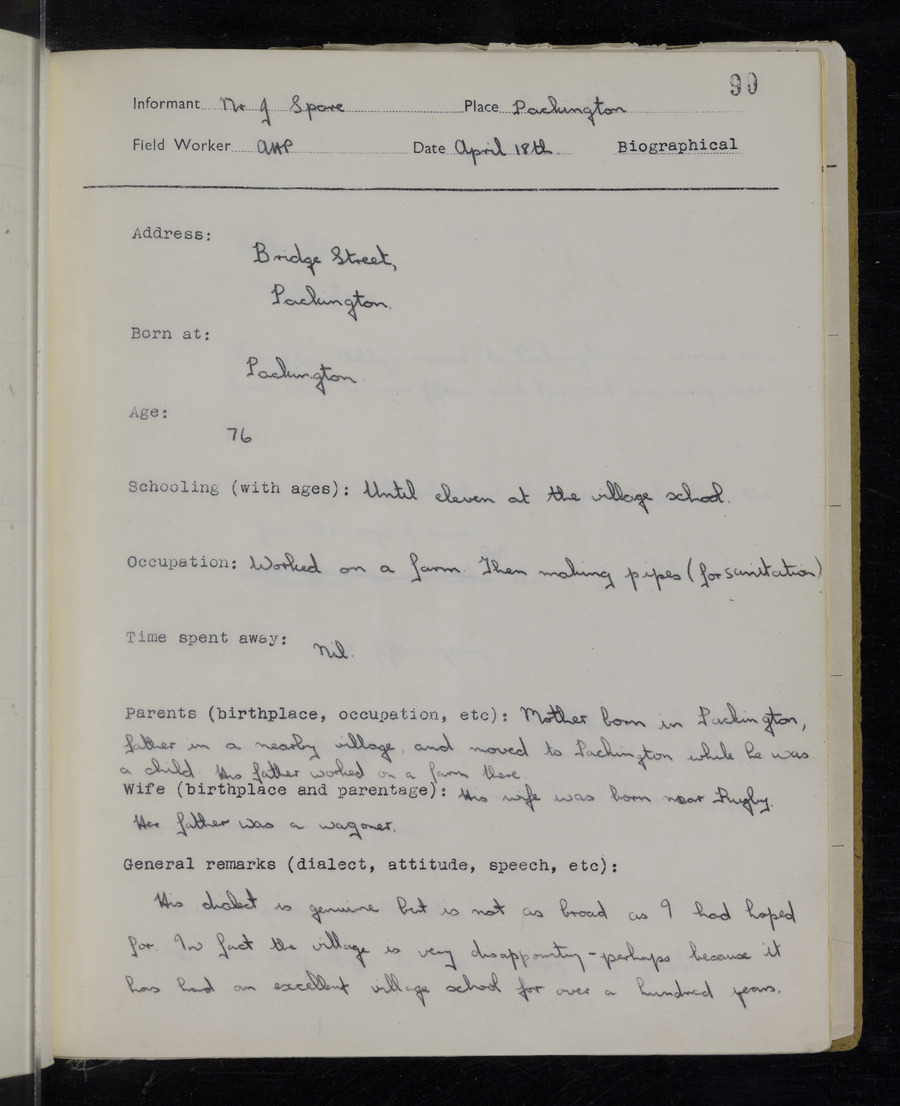 90
Informant Mr J Spare Place Packington
Field Worker AHP Date April 18th Biographical
Address:
Bridge Street,
Packington.
Born at:
Packington.
Age:
76
Schooling (with ages): Until eleven at the village school.
Occupation: Worked on a farm. Then making pipes (for sanitation)
Time spent away: Nil.
Parents (birthplace, occupation, etc): Mother born in Packington,
father in a nearby village, and moved to Packington while he was
a child. His father worked on a farm there.
Wife (birthplace and parentage): His wife was born near Rugby.
Her father was a wagoner.
General remarks (dialect, attitude, speech, etc):
His dialect is genuine but is not as broad as I had hoped
for. In fact the village is very disappointing - perhaps because it
has had an excellent village school for over a hundred years.